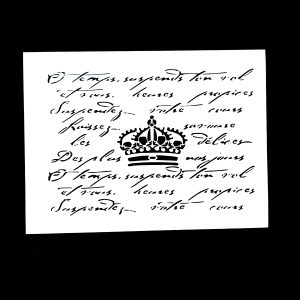 O temps, suspends ton vol
et vous, heures propices
Suspendez votre cours
Laissez savourer
les délices
Des plus nos jours
O temps, suspends ton vol
et vous, heures propices
Suspendez votre cours